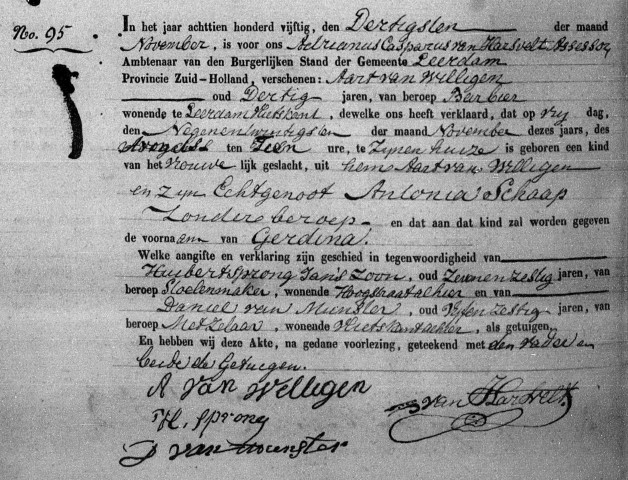 No. 95
In het jaar achttien honderd vijftig, den Dertigsten der maand
November, is voor ons Adrianus Casparus van Harsvelt Assessor
Ambtenaar van den Burgerlijken Stand der Gemeente Leerdam
Provincie Zuid-Holland, verschenen: Aart van Willigen
oud Dertig jaren, van beroep Barbier
wonende te Leerdam Vlietskant, dewelke ons heeft verklaard, dat op vrij dag,
den Negenentwintigsten der maand November dezes jaars, des
Avonds ten Tien ure, te Zijnen huize is geboren een kind
van het vrouwe lijk geslacht, uit hem Aart van Willigen
en zijn Echtgenoot Antonia Schaap
Zonder beroep en dat aan dat kind zal worden gegeven
de voornaam van Gerdina.
Welke aangifte en verklaring zijn geschied in tegenwoordigheid van
Huibert Sprong Jans Zoon, oud Zevenenzestig jaren, van
beroep Stoelenmaker, wonende Hoogstraat alhier en van
Daniel van Munster, oud Vijfenzestig jaren, van
beroep Metzelaar, wonende Vlietskant alhier, als getuigen.
En hebben wij deze Akte, na gedane voorlezing, geteekend met den vader en
beide de Getuigen.
A van Willigen
H. Sprong
van Harsvelt
D van Munster